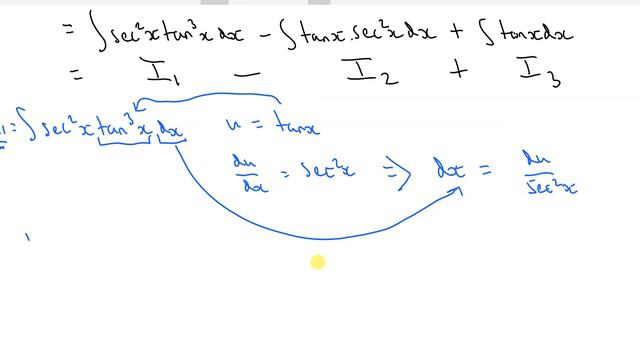 = ∫sec²x tan³x dx − ∫tanx.sec²x dx + ∫tanx dx
= I₁ − I₂ + I₃
= ∫sec²x tan³x dx u = tanx
du/dx = sec²x ⇒ dx = du/sec²x